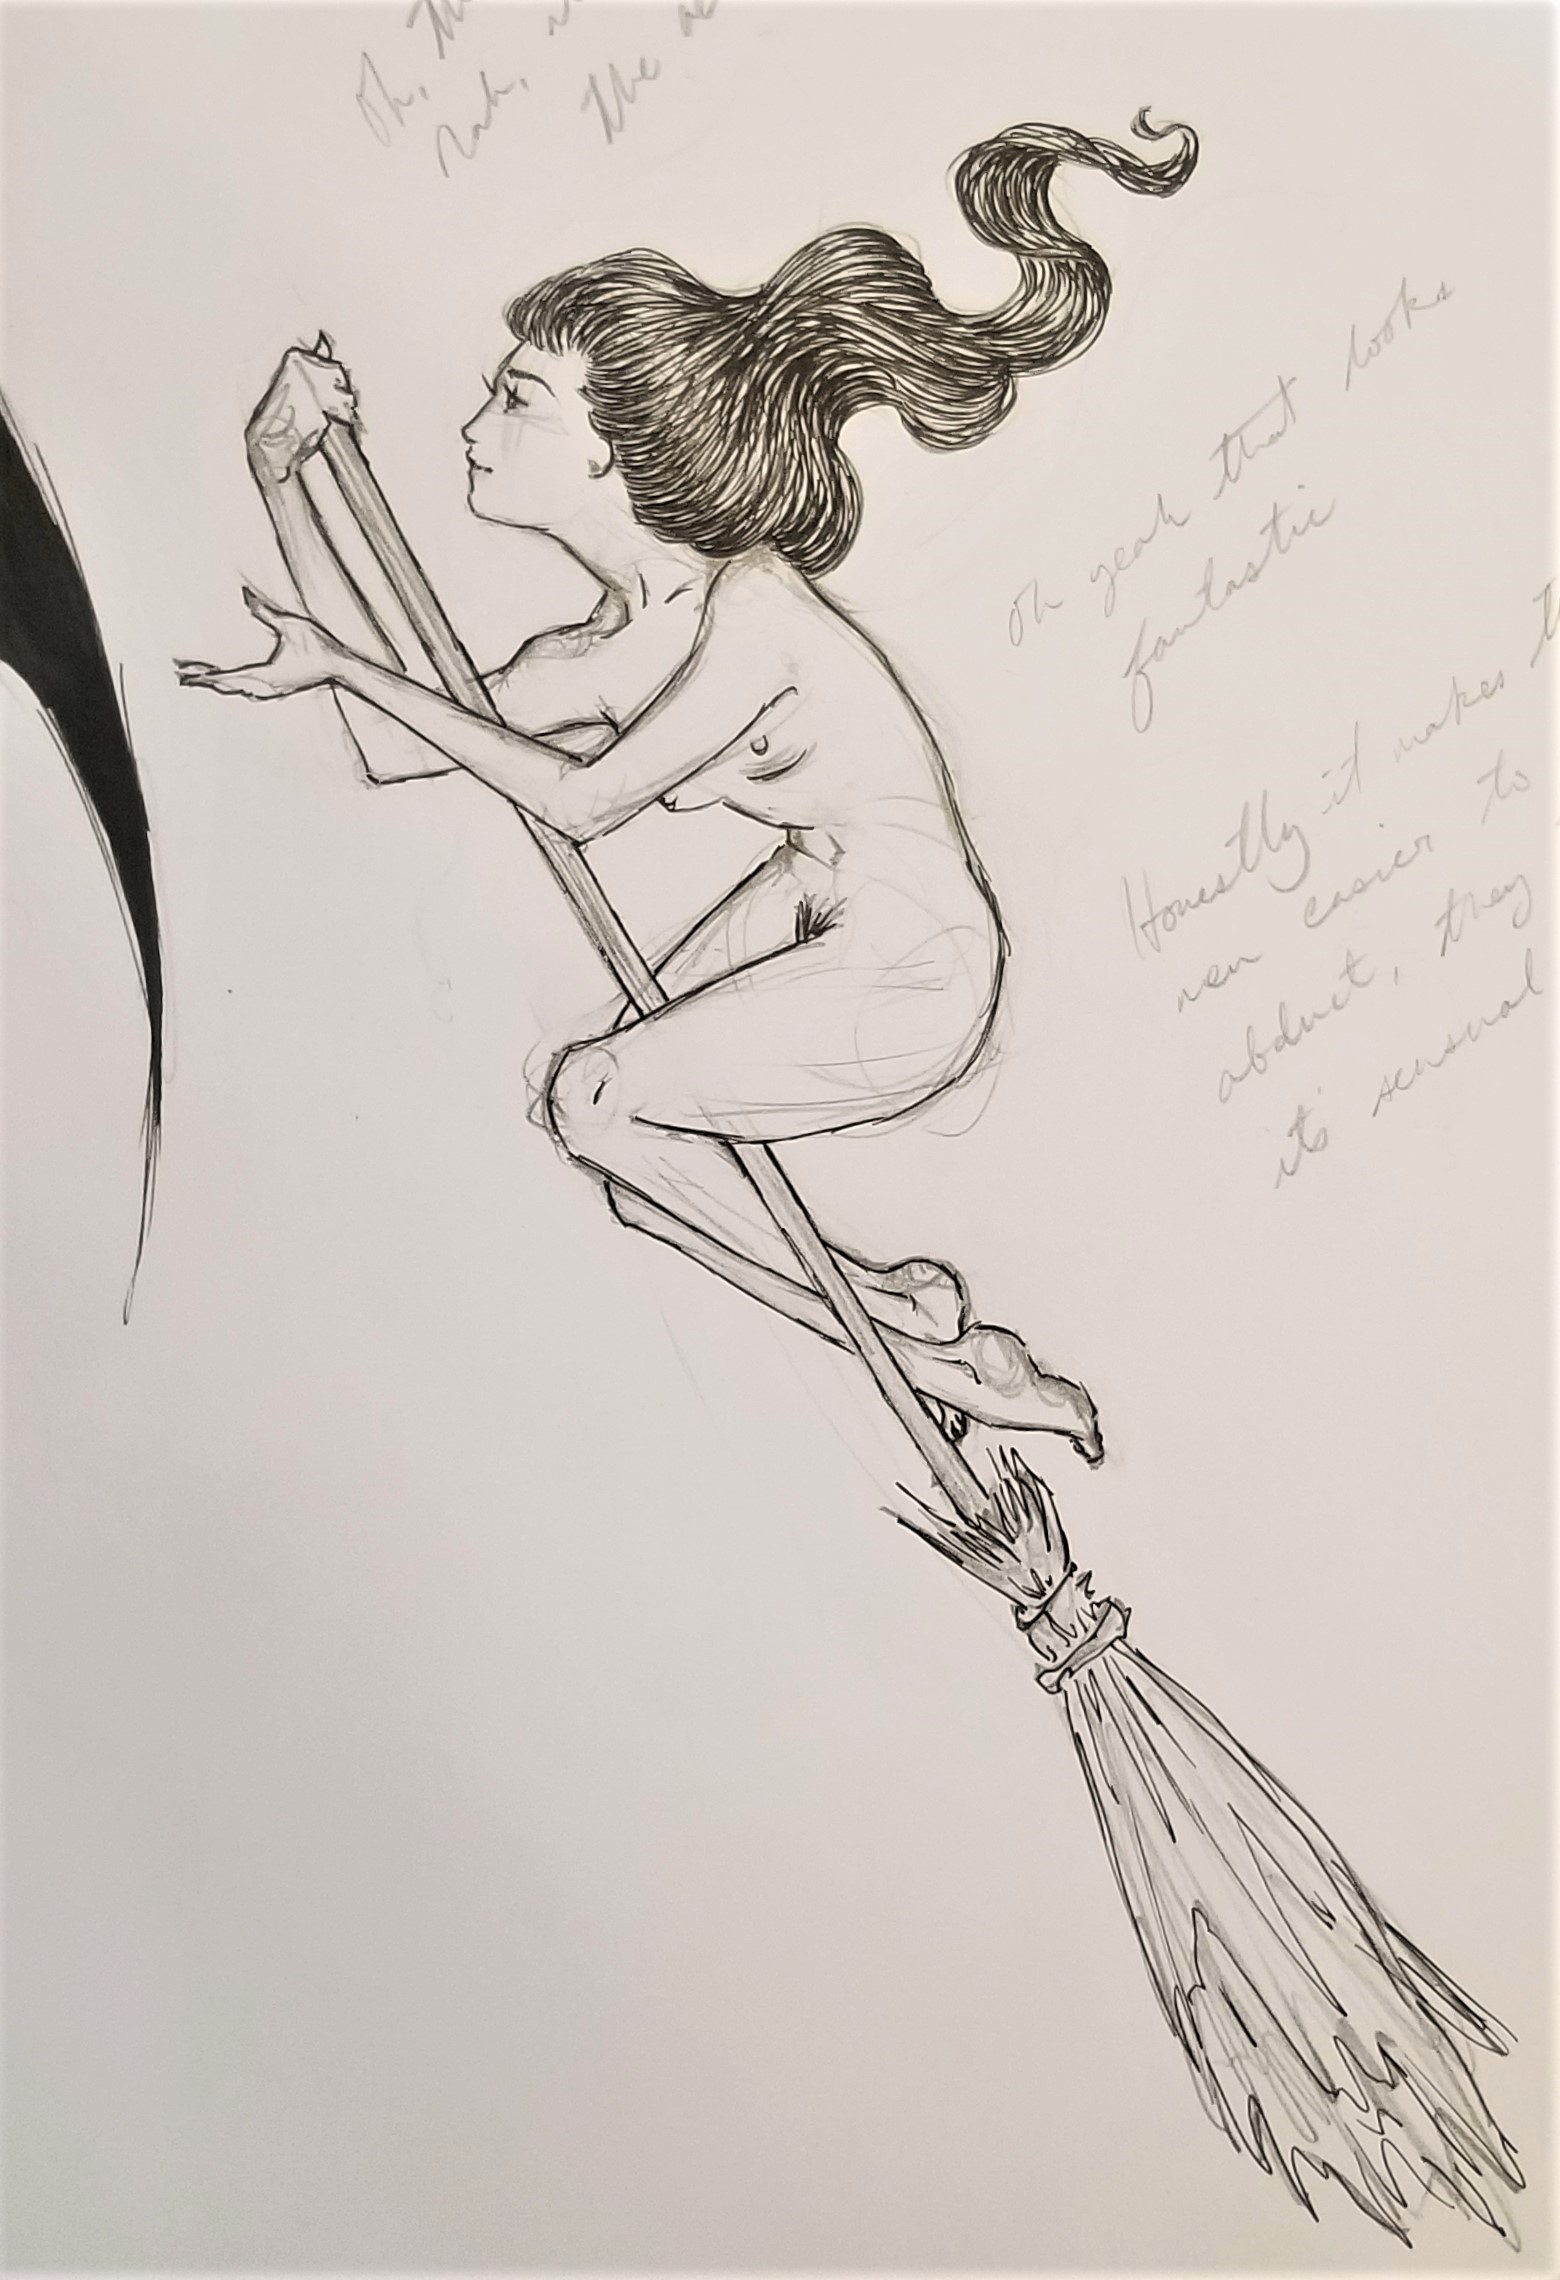 Oh,
the
oh yeah that looks
fantastic
Honestly it makes
men easier to
abduct, they
it's sensual